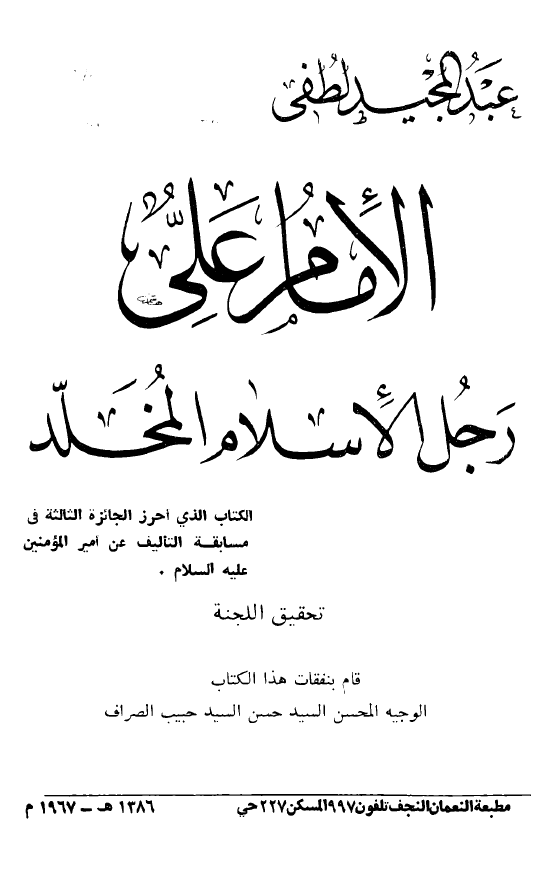 عَبْدُ المَجْيد لُطفى
الأِمَامُ عَلِيُّ
رَجُلُ الأِسلام المُخَلّد
الكتاب الذي أحرز الجائزة الثالثة فى
مسابقة التأليف عن أمير المؤمنين
عليه السلام .
تحقيق اللجنة
قام بنفقات هذا الكتاب
الوجيه المحسن السيد حسن السيد حبيب الصراف
مطبعة النعمان النجف تلفون ٩٩٧ المسكن ٢٢٧ حي ١٣٨٦ هـ – ١٩٦٧ م